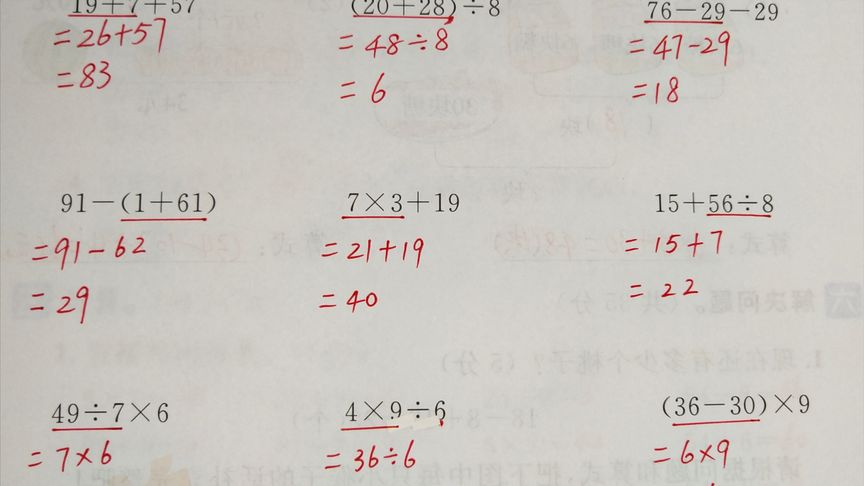 19+7+57
=26+57
=83
(20+28)÷8
=48÷8
=6
76-29-29
=47-29
=18
91-(1+61)
=91-62
=29
7×3+19
=21+19
=40
15+56÷8
=15+7
=22
49÷7×6
=7×6
4×9÷6
=36÷6
(36-30)×9
=6×9